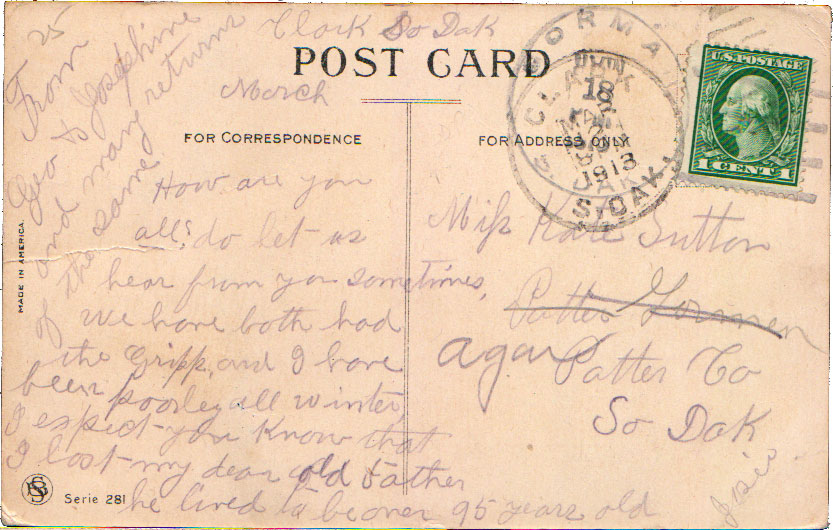 Clark So Dak
POST CARD
March 25
FOR CORRESPONDENCE
FOR ADDRESS ONLY
From
Geo to Josephine
and many returns
of the same
How are you
all? do let us
hear from you sometimes,
We have both had
the Gripp, and I have
been poorley all winter
I expect you know that
I lost my dear old Father
he lived to be over 95 years old
MADE IN AMERICA
Serie 281
Miss Kate Sutton
Potter
agar
Potter Co
So Dak
CLARK
18
1913
S. DAK.
U.S. POSTAGE
1 CENT 1